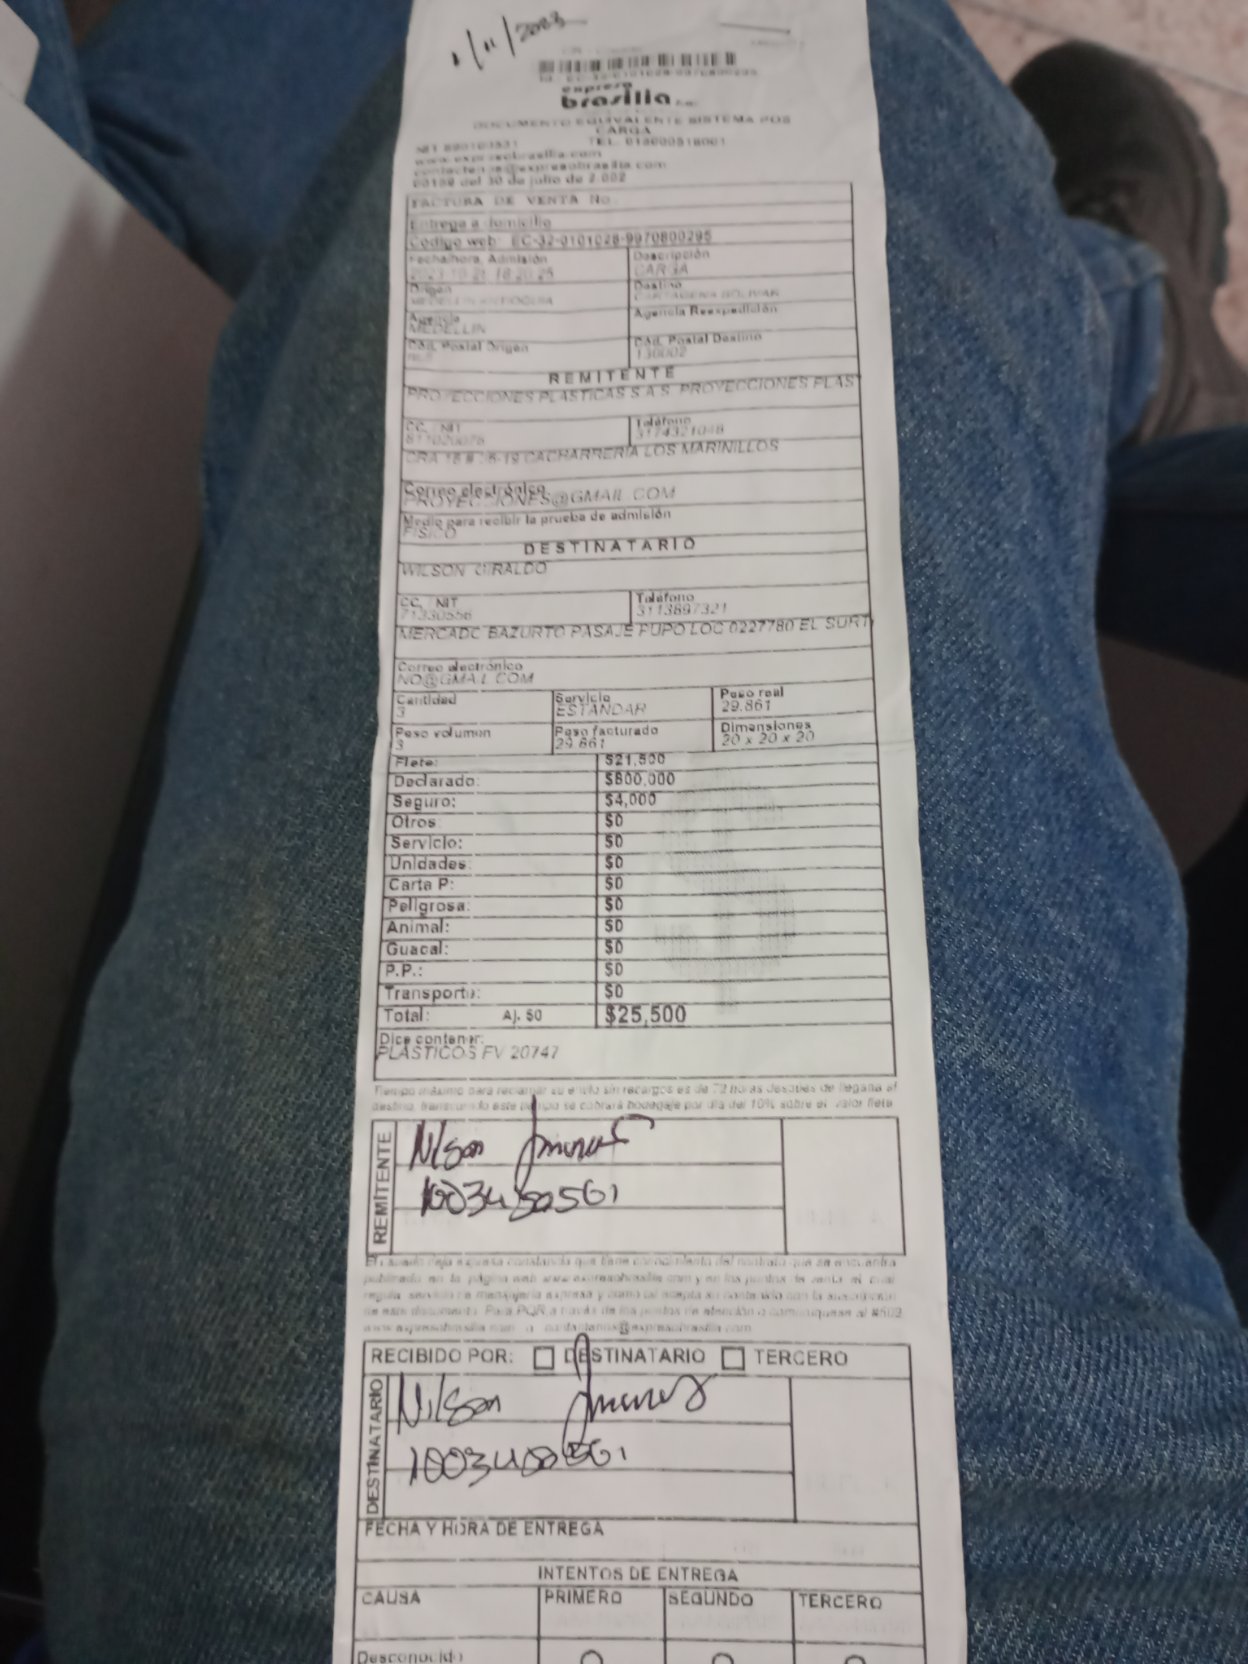 1/11/2023
expreso
brasilia
DOCUMENTO EQUIVALENTE SISTEMA POS
CARGA
NIT 890100531 TEL. 018000518001
www.expresobrasilia.com
contactenos@expresobrasilia.com
00188 del 30 de julio de 2.002
FACTURA DE VENTA No.
Entrega a domicilio
Codigo web: EC-32-0101028-9970800295
Fecha/hora, Admisión Descripción
CARGA
Origen Destino
MEDELLIN ANTIOQUIA CARTAGENA BOLIVAR
Agencia Agencia Reexpedición
MEDELLIN
Cód. Postal Origen Cód. Postal Destino
130002
REMITENTE
PROYECCIONES PLASTICAS S.A.S. PROYECCIONES PLAST
CC. NIT Teléfono
811020078 3174321048
CACHARRERIA LOS MARINILLOS
Correo electrónico
PROYECCIONES@GMAIL.COM
Medio para recibir la prueba de admisión
FISICO
DESTINATARIO
WILSON GIRALDO
CC. NIT Teléfono
71330556 3113897321
MERCADO BAZURTO PASAJE PUPO LOC 0227780 EL SURT
Correo electrónico
NO@GMAIL.COM
Cantidad Servicio Peso real
3 ESTANDAR 29.861
Peso volumen Peso facturado Dimensiones
3 29.861 20 x 20 x 20
Flete: $21,500
Declarado: $800,000
Seguro: $4,000
Otros: $0
Servicio: $0
Unidades: $0
Carta P: $0
Peligrosa: $0
Animal: $0
Guacal: $0
P.P.: $0
Transporte: $0
Total: Aj. $0 $25,500
Dice contener:
PLASTICOS FV 20747
Tiempo máximo para reclamar su envío sin recargos es de 72 horas después de llegada al
destino, transcurrido este tiempo se cobrará bodegaje por día del 10% sobre el valor flete
REMITENTE
Nilson Jimenez
El usuario deja expresa constancia que tiene conocimiento del contrato que se encuentra
publicado en la página web www.expresobrasilia.com y en los puntos de venta el cual
regula servicio de mensajería expresa y como tal acepta su contenido con la suscripción
de este documento. Para PQR a través de los puntos de atención o comuníquese al #502
www.expresobrasilia.com o contactenos@expresobrasilia.com
RECIBIDO POR: DESTINATARIO TERCERO
DESTINATARIO
Nilson Jimenez
FECHA Y HORA DE ENTREGA
INTENTOS DE ENTREGA
CAUSA PRIMERO SEGUNDO TERCERO
Desconocido